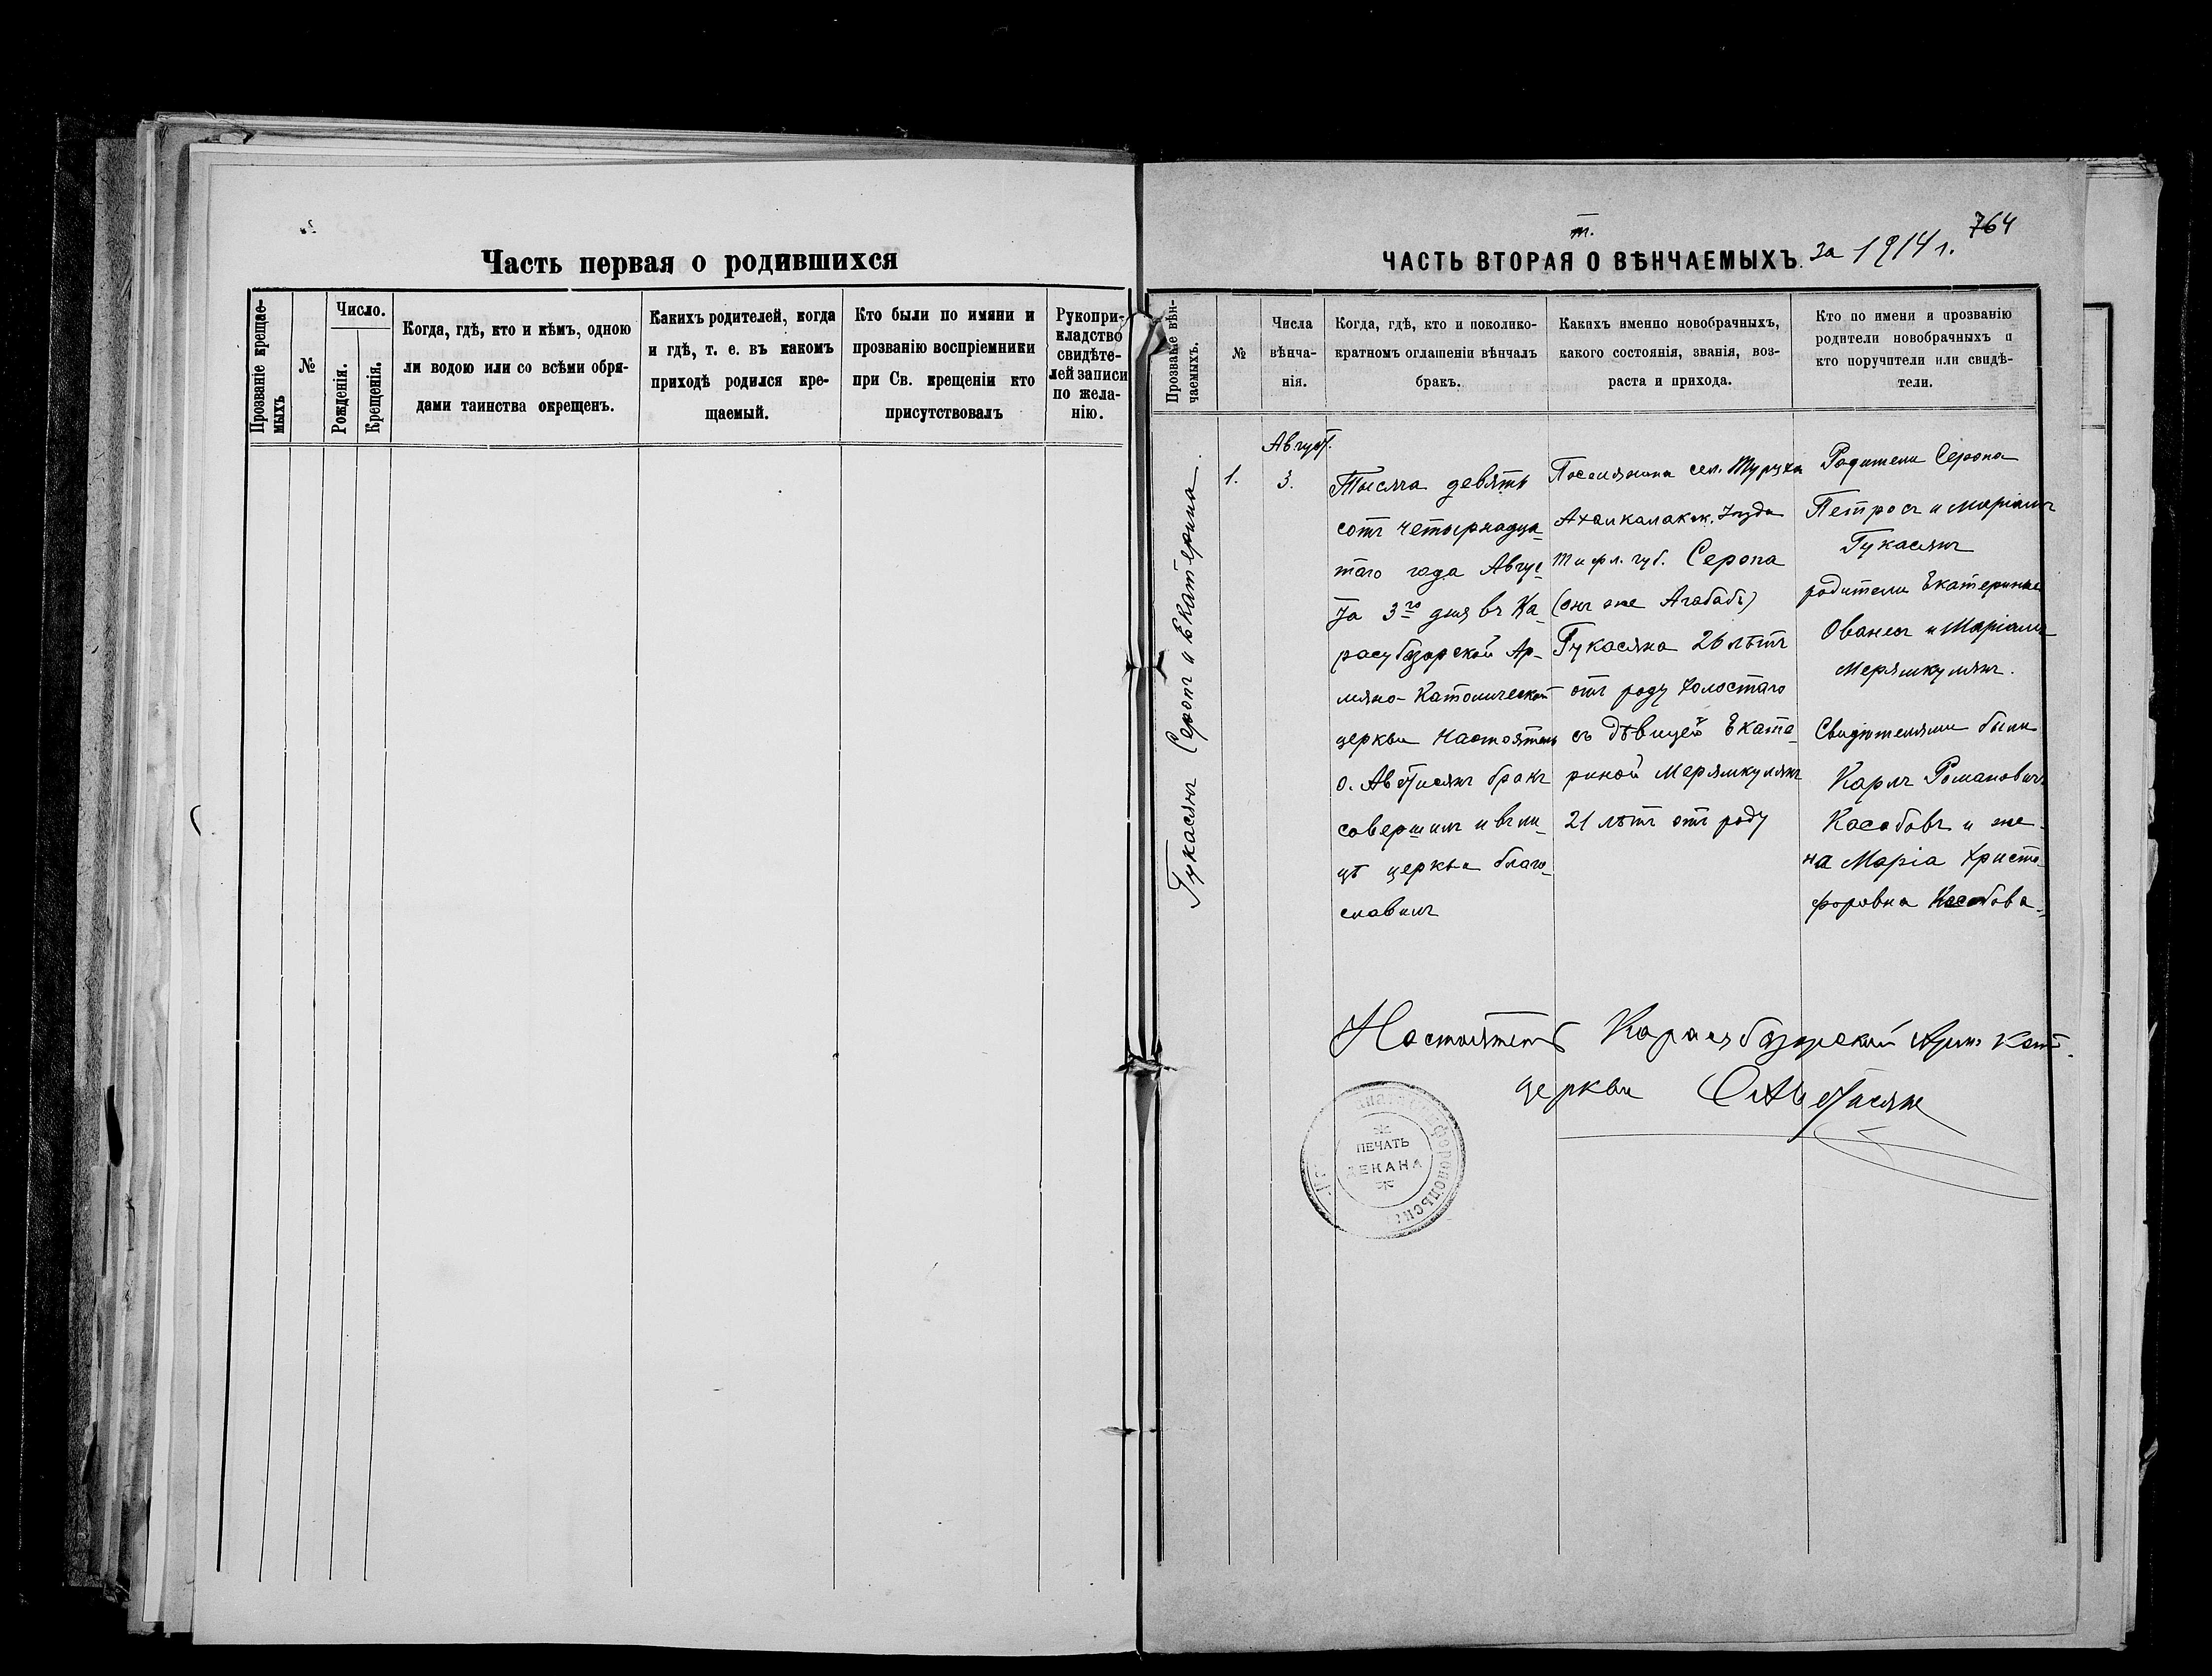 Часть первая о родившихся
Прозваніе крещае-
мыхъ
№
Число.
Рожденія.
Крещенія.
Когда, гдѣ, кто и кѣмъ, одною
ли водою или со всѣми обря-
дами таинства окрещенъ.
Какихъ родителей, когда
и гдѣ, т. е. въ какомъ
приходѣ родился кре-
щаемый.
Кто были по имяни и
прозванію воспріемники
при Св. крещеніи кто
присутствовалъ
Рукопри-
кладство
свидѣте-
лей записи
по жела-
нію.
764
ЧАСТЬ ВТОРАЯ О ВѢНЧАЕМЫХЪ. за 1914 г.
Прозваніе вѣн-
чаемыхъ.
№
Числа
вѣнча-
нія.
Когда, гдѣ, кто и поколико-
кратномъ оглашеніи вѣнчалъ
бракъ.
Какихъ именно новобрачныхъ,
какого состоянія, званія, воз-
раста и прихода.
Кто по имени и прозванію
родители новобрачныхъ и
кто поручители или свидѣ-
тели.
Гукасянъ Серопъ и Екатерина
1.
Август.
3.
Тысяча девять
сотъ четырнадца-
таго года Авгус-
та 3го дня въ Ка-
расубазарской Ар-
мяно-Католической
церкви Настоятель
о. Аветисянъ бракъ
совершилъ и въ ли-
цѣ церкви благо-
славилъ
Поселянина сел. Туруха
Ахалкалакск. уѣзда
Тифл. губ. Серопа
(онъ же Агабабъ)
Гукасяна 26 лѣтъ
отъ роду холостаго
съ дѣвицей Екате-
риной Мерямкулянъ
21 лѣтъ отъ роду
Родители Серопа
Петросъ и Маріамъ
Гукасянъ
родители Екатерины
Ованесъ и Маріамъ
Мерямкулянъ.
Свидѣтелями были
Карлъ Романовичъ
Касабовъ и же-
на Марія Христо-
форовна Касабова.
Настоятель Карасубазарской Арм. Кат.
церкви О Аветисянъ
ПЕЧАТЬ
ДЕКАНА